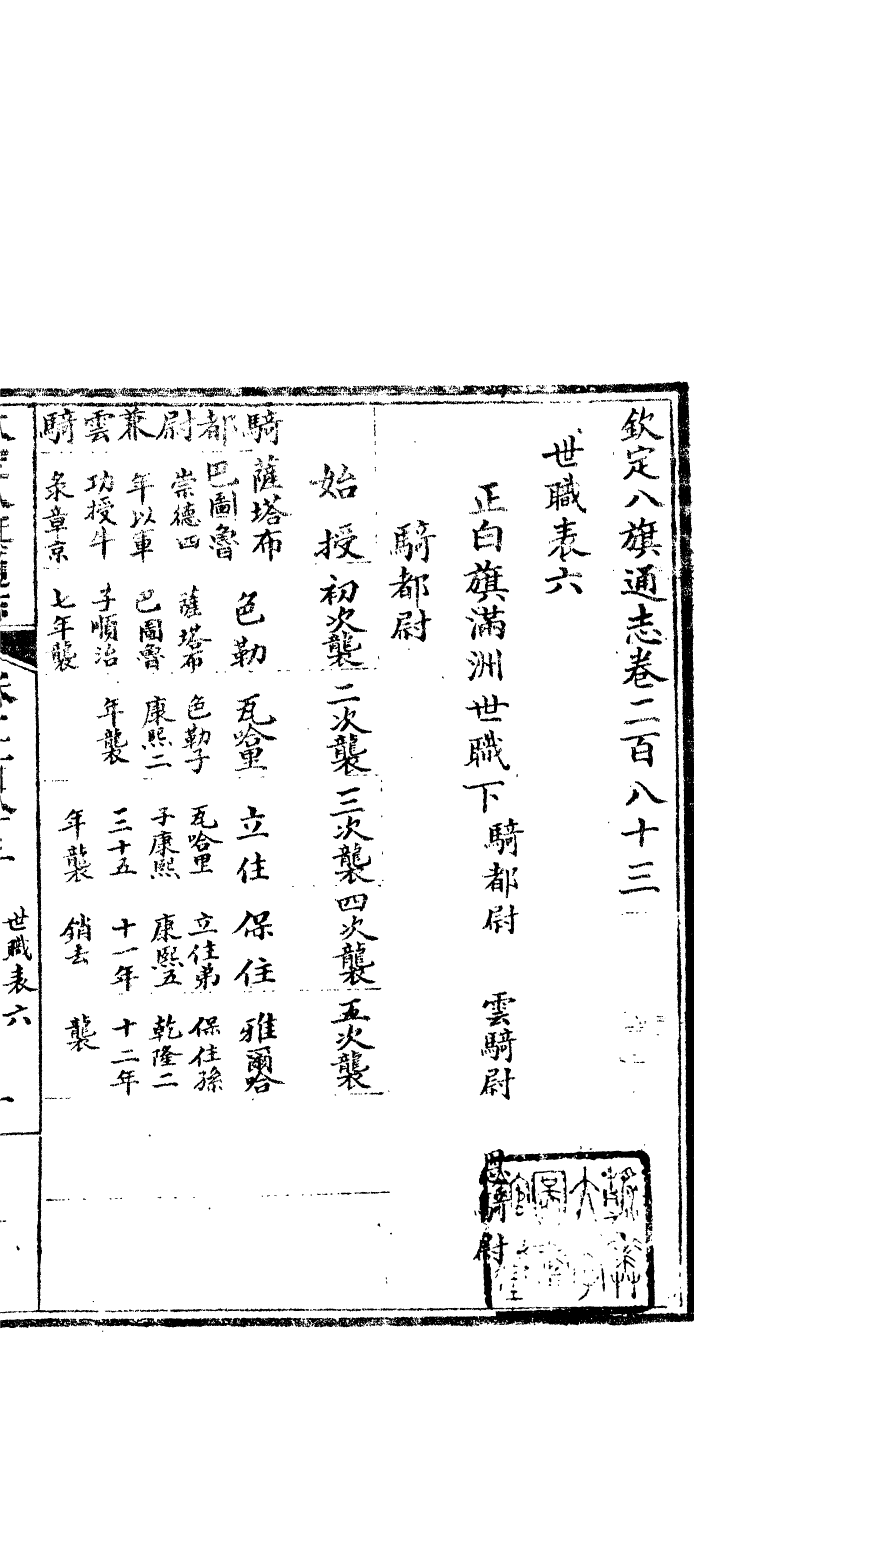 欽定八旗通志卷二百八十三
世職表六
正白旗滿洲世職下 騎都尉 雲騎尉 恩騎尉
騎都尉
始授 初次襲 二次襲 三次襲 四次襲 五次襲
騎都尉兼雲騎
薩塔布巴圖魯
崇德四年以軍功授牛彔章京
色勒
薩塔布巴圖魯子順治七年襲
瓦哈里
色勒子康熙二年襲
立住
瓦哈里子康熙三十五年襲
保住
立住弟康熙五十一年銷去
雅爾哈
保住孫乾隆二十二年襲
世職表六
一